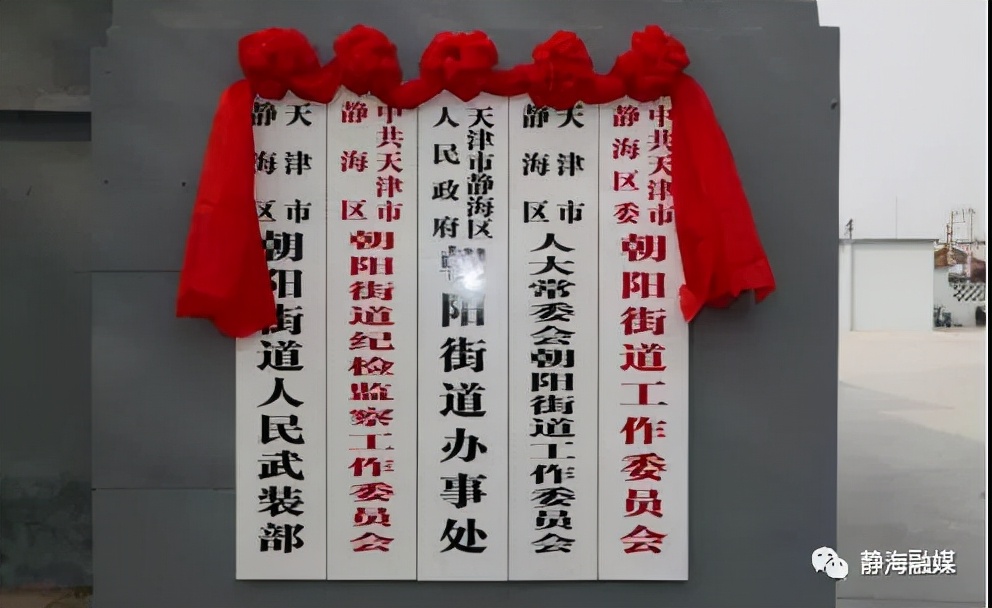 中共天津市
静海区委
朝阳街道工作委员会
天津市
静海区
人大常委会朝阳街道工作委员会
天津市静海区
人民政府
朝阳街道办事处
中共天津市
静海区
朝阳街道纪检监察工作委员会
天津市
静海区
朝阳街道人民武装部
静海融媒